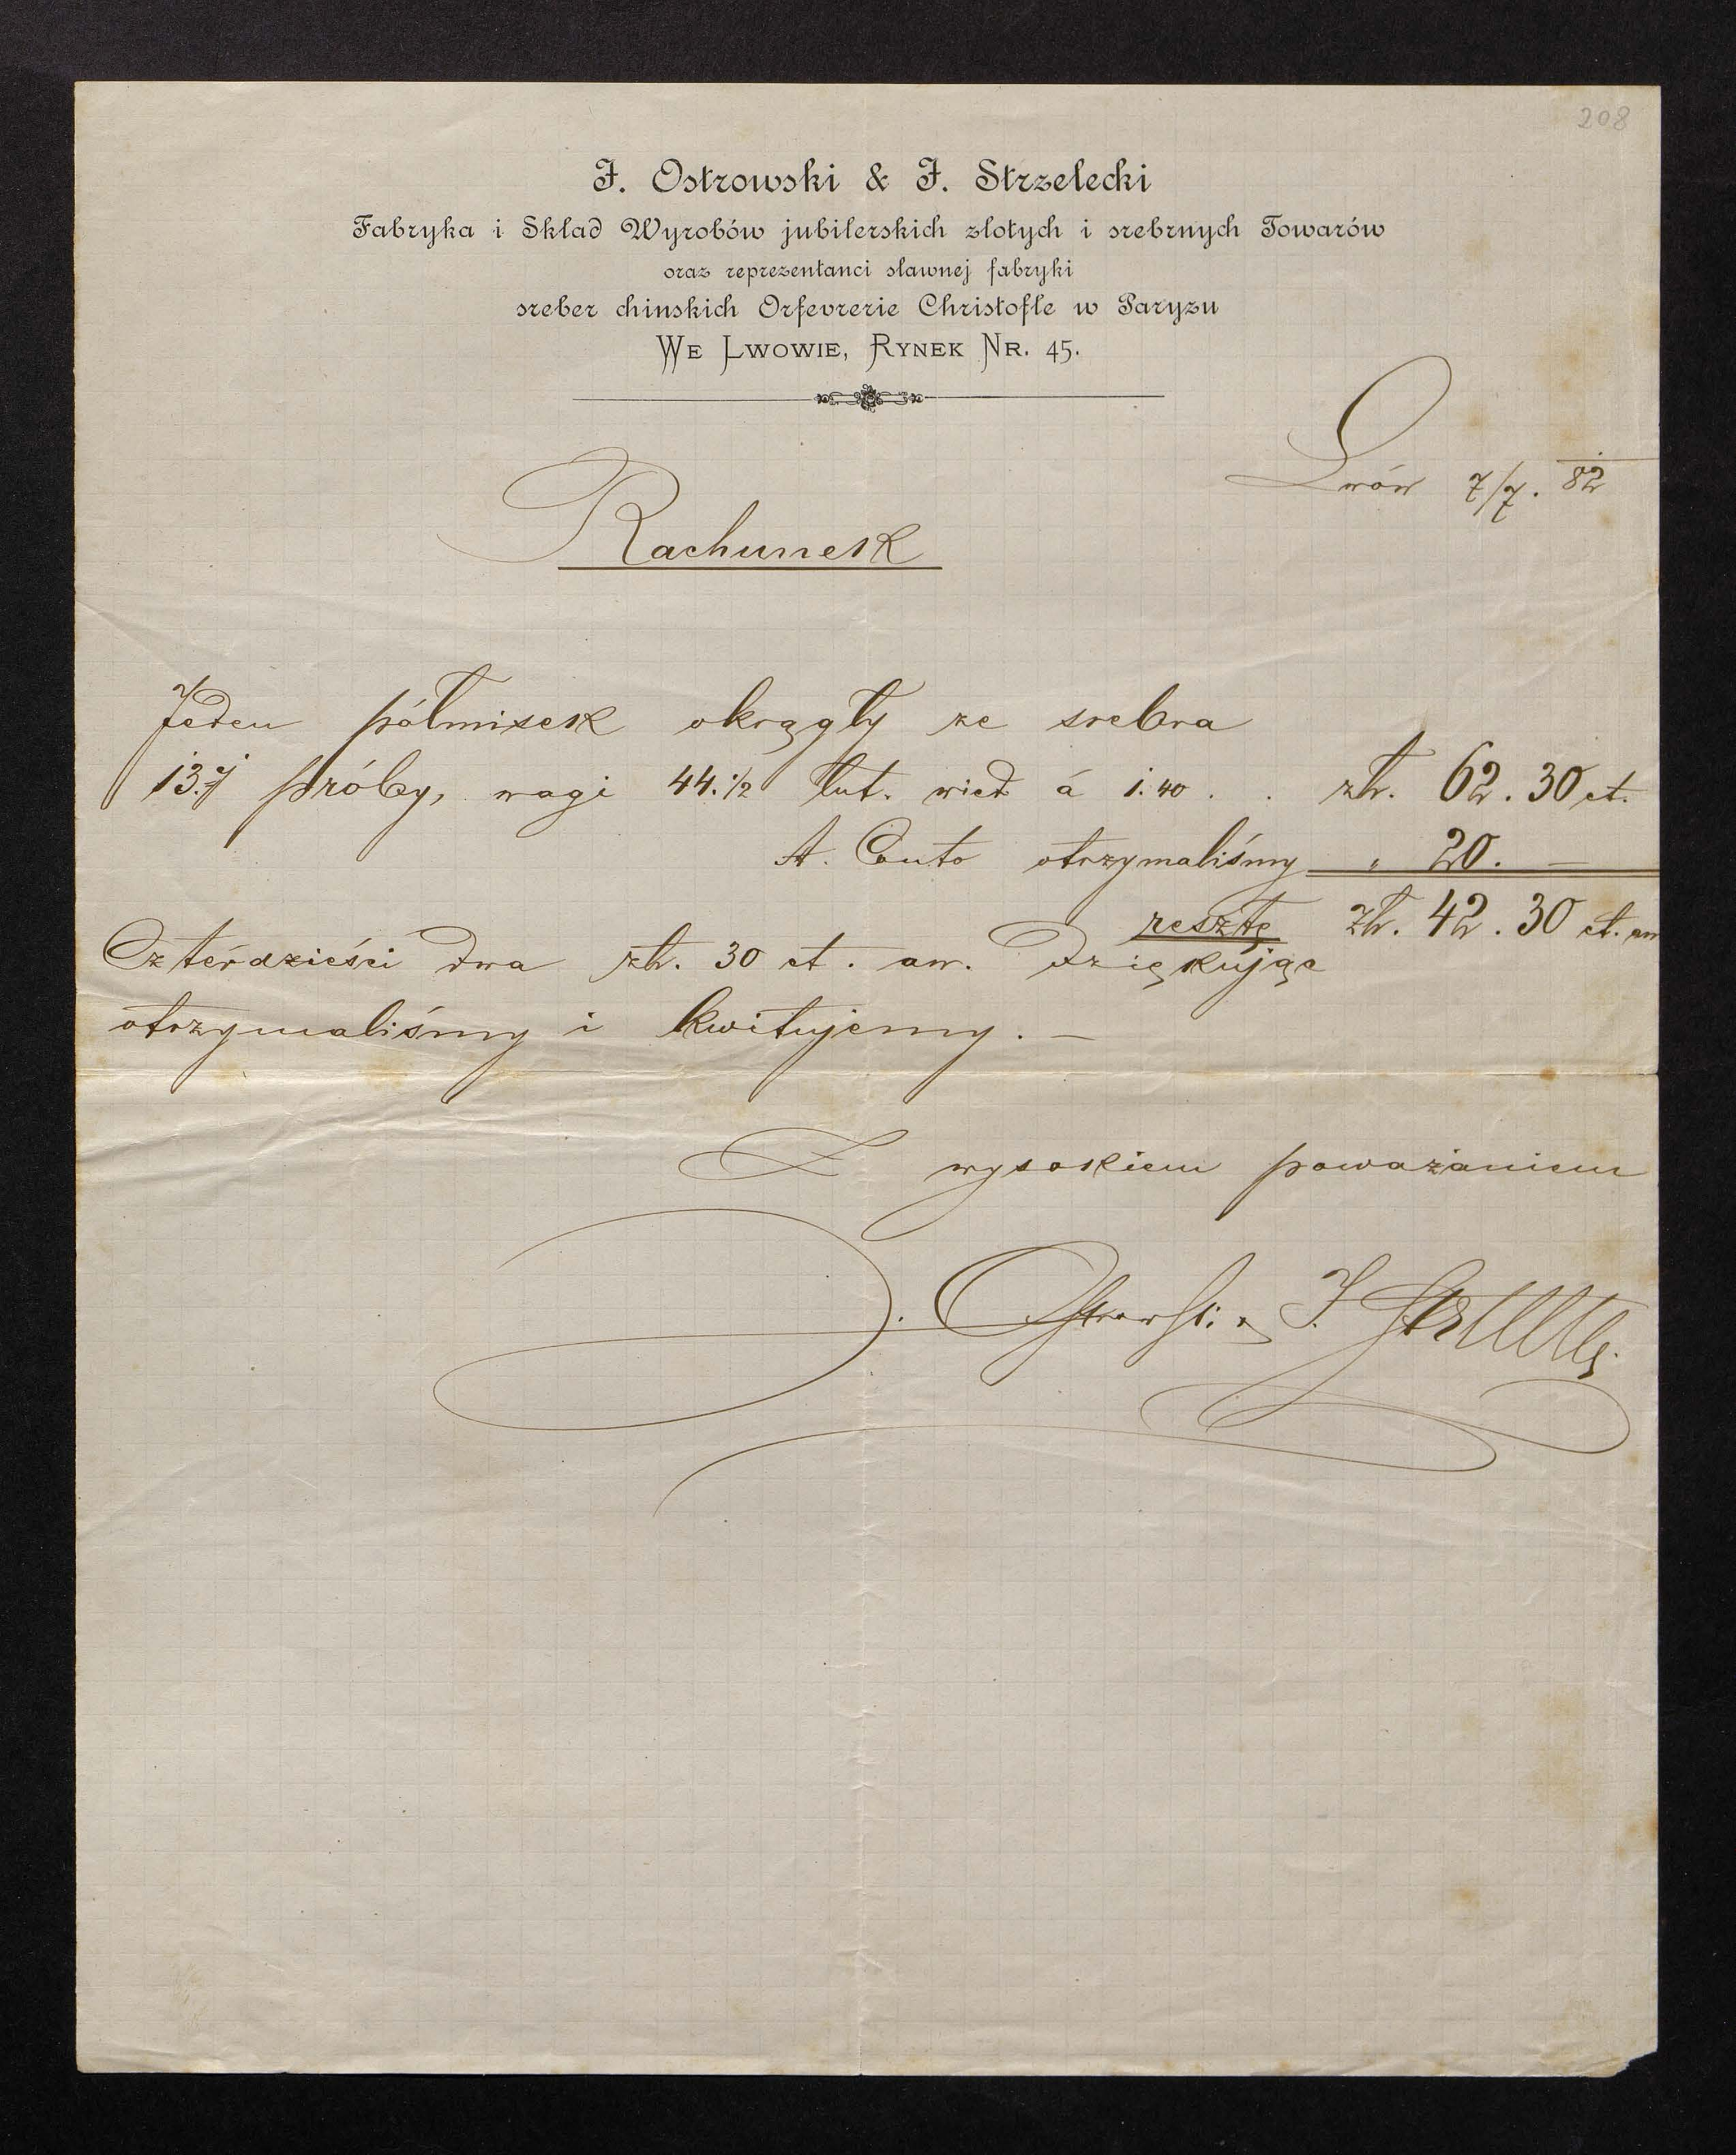 208
J. Ostrowski & J. Strzelecki
Fabryka i Skład Wyrobów jubilerskich złotych i srebrnych Towarów
oraz reprezentanci sławnej fabryki
sreber chinskich Orfevrerie Christofle w Paryzu
WE LWOWIE, RYNEK NR. 45.
Lwów 7/7. 82
Rachunek
Jeden półmisek okrągły ze srebra
13.ej próby, wagi 44.1/2 łut. wied á 1.40 . . zł. 62.30 ct.
A. Conto otrzymaliśmy „ 20. —
resztę zł. 42.30 ct. aw
Czterdzieści dwa zł. 30 ct. aw. dziękując
otrzymaliśmy i kwitujemy. —
Z wysokiem poważaniem
J. Ostrowski & J. Strzelecki